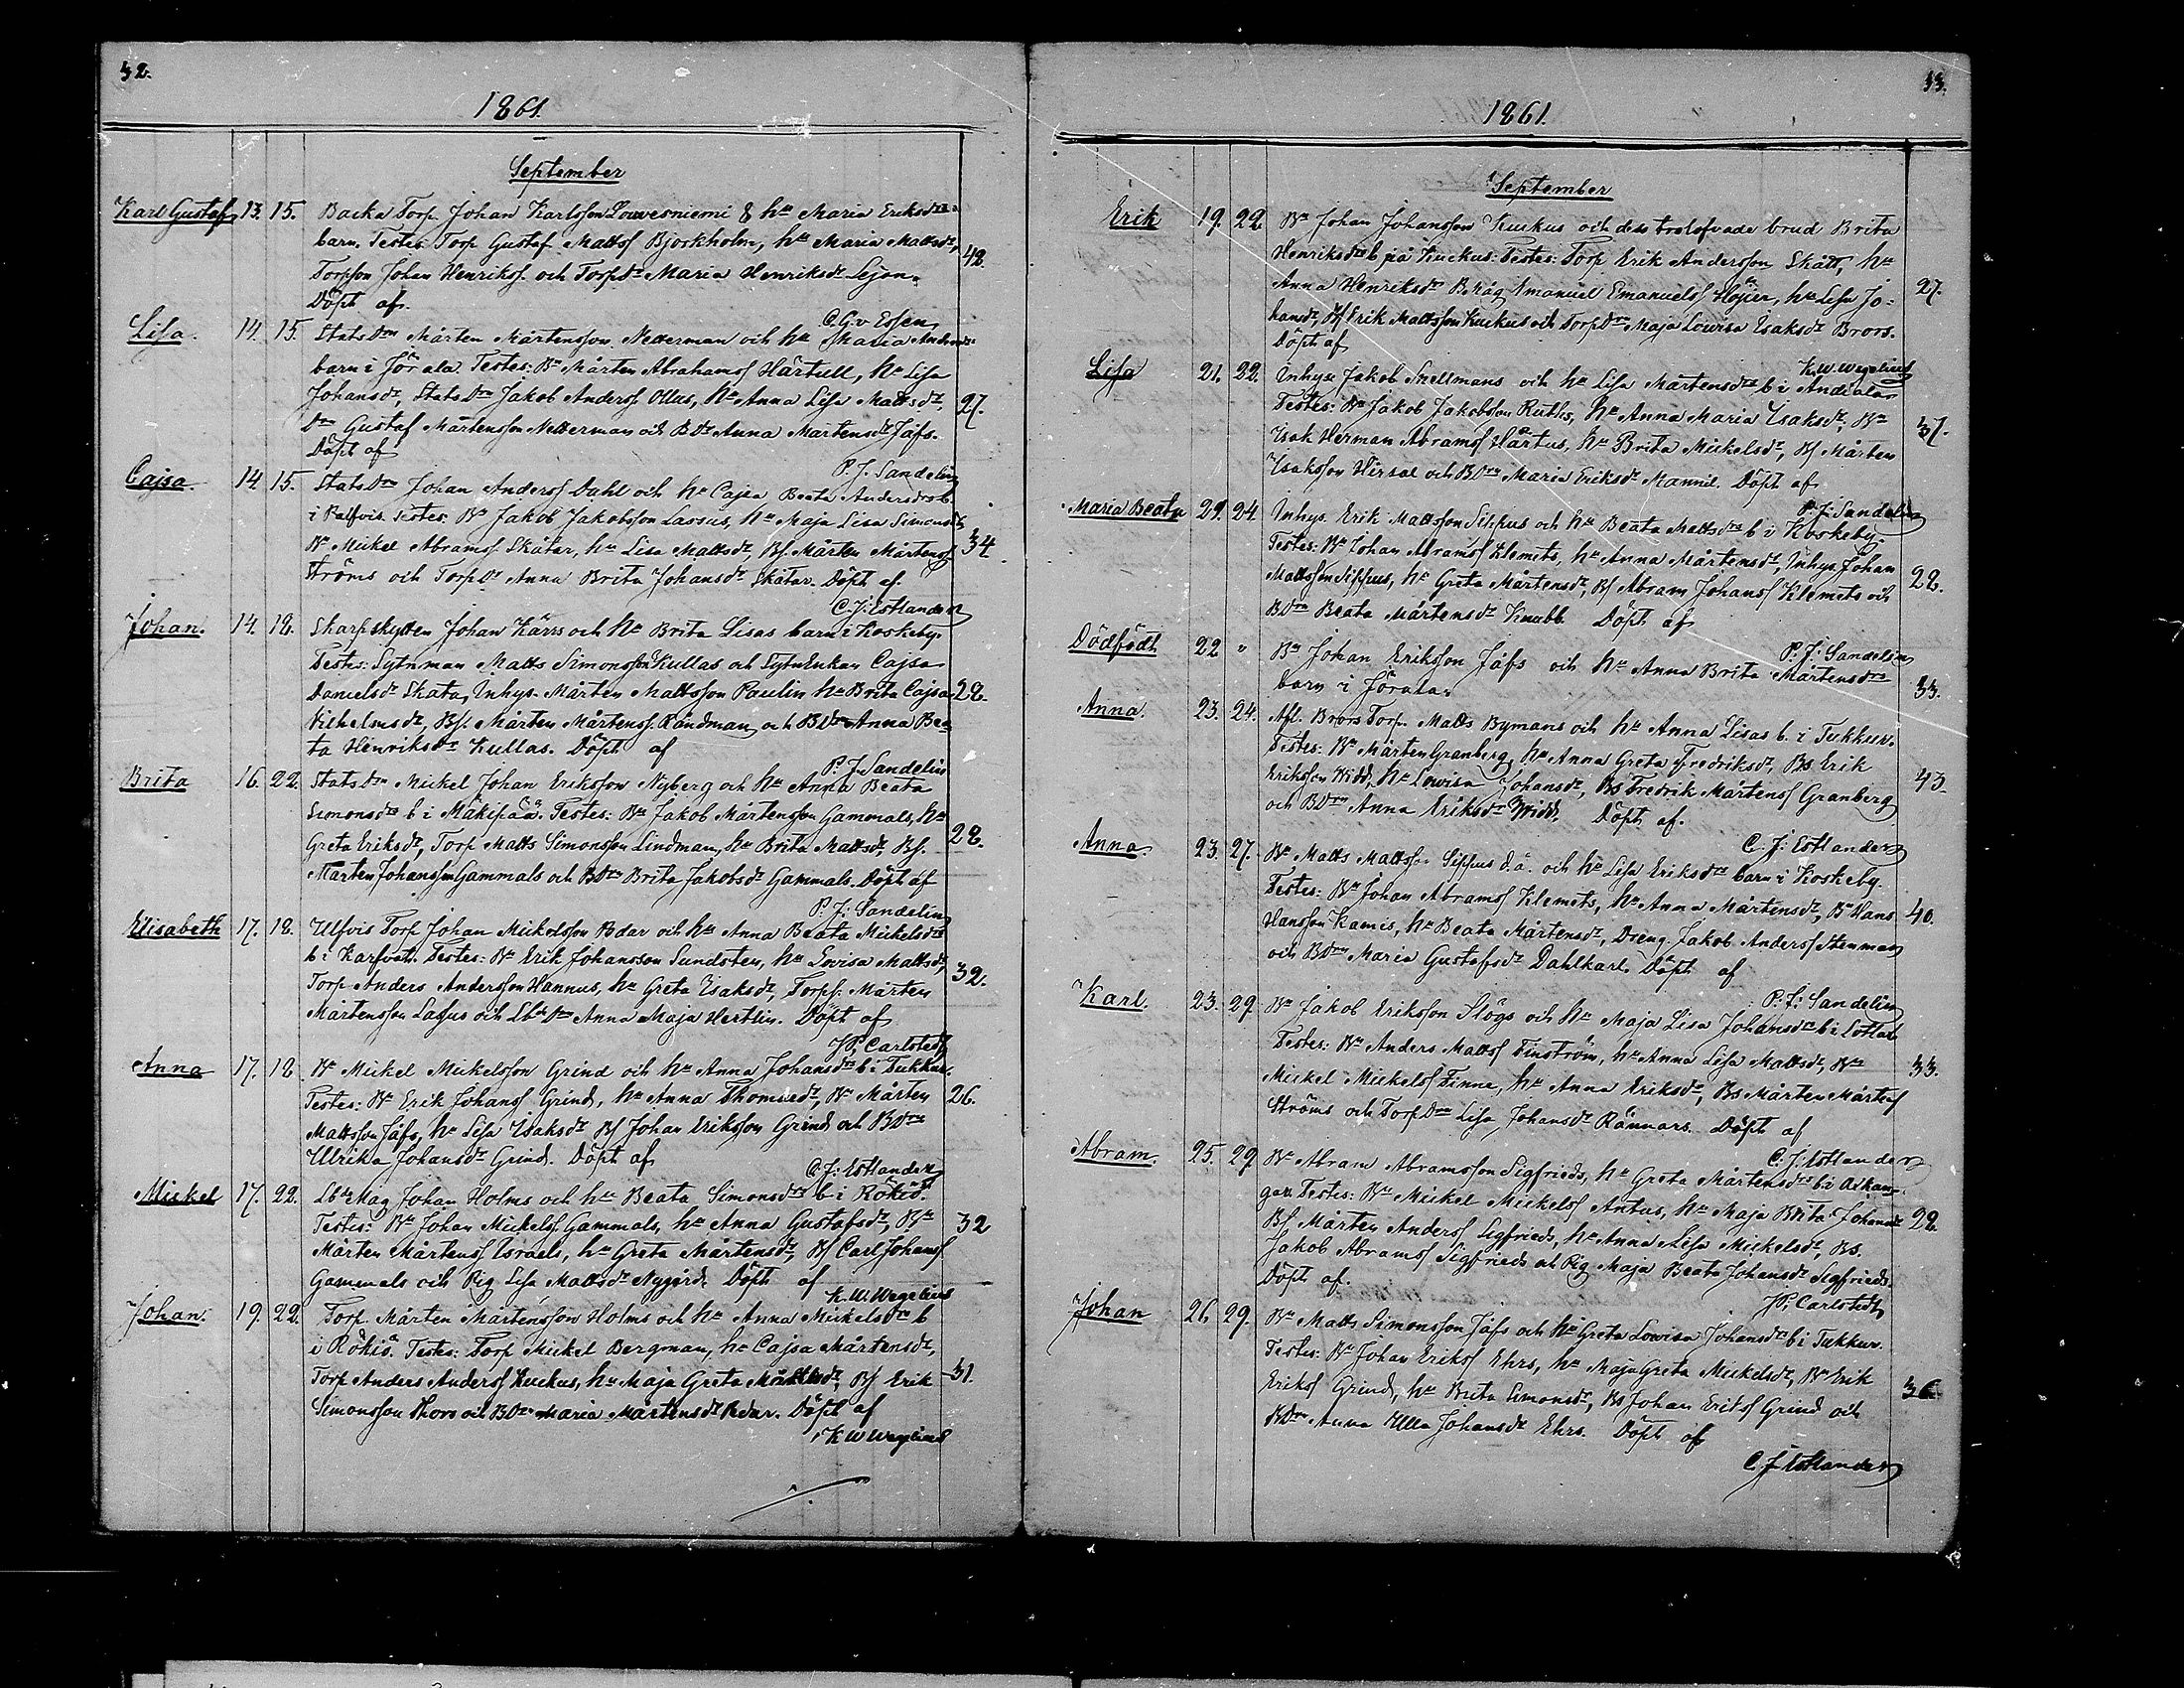 32.
1861.
September
Karl Gustaf 13. 15. Backa Torp. Johan Karlsson Louvesniemi & hu Maria Eriksdrs
barn. Testes: Torp Gustaf Mattss Bjorkholm, hu Maria Mattsdr,
42.
Torpson Johan Henrikss. och TorpDr Maria Henriksdr Lejon.
Döpt af.
C. G. v Essen
Lisa. 14. 15. StatsDrn Mårten Mårtensson Netterman och hu Maria Andersdrs
barn i Jörala. Testes: Bn Mårten Abrahamss Hartull, hu Lisa
Johansdr, StatsDrn Jakob Anderss Ollus, hu Anna Lisa Mattsdr, 27.
Drn Gustaf Mårtensson Netterman och BDr Anna Mårtensdr Jåfs.
Döpt af
P. J. Sandelin
Cajsa. 14 15. StatsDrn Johan Anderss Dahl och hu Cajsa Beata Andersdrs b.
i Palfvis. Testes: Bn Jakob Jakobsson Lassus, hu Maja Lisa Simonsdr
Bn Mickel Abramss. Skåtar, hu Lisa Mattsdr, Bs. Mårten Mårtenss 34.
Ströms och TorpDr Anna Brita Johansdr Skåtar. Döpt af.
C. J. Estlander
Johan. 14. 18. Skarpskytten Johan Kärrs och hu Brita Lisas barn i Koskeby.
Testes: Sytnman Matts Simonsson Kullas och SytnEnkan Cajsa
Danielsdr Skata, Inhys. Mårten Mattsson Paulin hu Brita Cajsa 28.
Vilhelmsdr, Bs. Mårten Mårtenss. Randman och BDrn Anna Bea-
ta Henriksdr Kullas. Döpt af
P. J. Sandelin
Brita 16. 22. StatsDrn Mickel Johan Eriksson Nyberg och hu Anna Beata
Simonsdrs b i Mäkipää. Testes: Bn Jakob Mårtensson Gammals, hu
Greta Eriksdr, Torp Matts Simonsson Lindman, hu Brita Mattsdr, Bs. 28.
Mårten Johansson Gammals och BDrn Brita Jakobsdr Gammals. Döpt af
P. J. Sandelin
Elisabeth 17. 18. Ulfvis Torp Johan Mickelsson Redar och hu Anna Beata Mickelsdrs
b i Karfvat. Testes: Bn Erik Johansson Sundsten, hu Lovisa Mattsdr,
Torp Anders Andersson Hannus, hu Greta Isaksdr, Torps. Mårten 32.
Mårtensson Lassus och LbdeDrn Anna Maja Hertlin. Döpt af
JP. Carlstedt
Anna 17. 18 Bn Mickel Mickelsson Grind och hu Anna Johansdrs b i Tukkur.
Testes: Bn Erik Johanss Grind, hu Anna Thomasdr, Bn Mårten 26.
Mattsson Jåfs, hu Lisa Isaksdr Bs Johan Eriksson Grind och BDrn
Ulrika Johansdr Grind. Döpt af
C. J. Estlander
Mickel 17. 22. LbdeMåg Johan Holms och hu Beata Simonsdrs b i Rökiö.
Testes: Bn Johan Mickelss Gammals, hu Anna Gustafsdr, Bn 32
Mårten Mårtenss Israels, hu Greta Mårtensdr, Bs Carl Johanss
Gammals och Pig Lisa Mattsdr Nygård. Döpt af
K. W. Wegelius
Johan. 19. 22. Torp. Mårten Mårtensson Holms och hu Anna Mickelsdrs b
i Rökiö. Testes: Torp Mickel Bergman, hu Cajsa Mårtensdr,
Torp Anders Anderss Kuckus, hu Maja Greta Mickelsdr, Bs Erik 31.
Simonsson Thors och BDrn Maria Mårtensdr Redar. Döpt af
K W Wegelius
33.
1861.
September
Erik 19. 22. Bn Johan Johansson Kuckus och dess trolofvade brud Brita
Henriksdrs b på Kuckus: Testes: Torp Erik Andersson Skått, hu
Anna Henriksdr B.måg Emanuel Emanuelss Höjer, hu Lisa Jo- 27.
hansdr, Bs Erik Mattsson Kuckus och TorpDrn Maja Lowisa Isaksdr Brors.
Döpt af
K. W. Wegelius
Lisa 21. 22. Inhyse Jakob Snellmans och hu Lisa Mårtensdrs b i Andiala
Testes: Bn Jakob Jakobsson Ruths, hu Anna Maria Isaksdr, Bn 37.
Isak Herman Abramss Hartus, hu Brita Mickelsdr, Bs Mårten
Isaksson Hirvae och BDrn Maria Eriksdr Mannil. Döpt af
P. J. Sandelin
Maria Beata 21. 24. Inhys. Erik Mattsson Sippus och hu Beata Mattsdrs b i Koskeby.
Testes: Bn Johan Abramss Klemets, hu Anna Mårtensdr, Inhys Johan
Mattsson Sippus, hu Greta Mårtensdr, Bs Abram Johanss Klemets och 28.
BDrn Beata Mårtensdr Knubb. Döpt af
P. J. Sandelin
Dödfödt 22 " Bn Johan Eriksson Jåfs och hu Anna Brita Mårtensdrs
barn i Jörala. 33.
Anna. 23. 24. Afl. Brors Torp. Matts Bymans och hu Anna Lisas b. i Tukkur.
Testes: Bn Mårten Granberg, hu Anna Greta Fredriksdr, Bs Erik
Eriksson Widd, hu Lowisa Johansdr, Bs Fredrik Mårtens Granberg 43.
och BDrn Anna Eriksdr Widd. Döpt af.
C. J. Estlander
Anna. 23. 27. Bn Matts Mattsson Sippus d.ä. och hu Lisa Eriksdrs barn i Koskeby.
Testes: Bn Johan Abramss Klemets, hu Anna Mårtensdr, Bn Hans 40.
Hansson Kamis, hu Beata Mårtensdr, Dreng. Jakob Anderss Stenman
och BDrn Maria Gustafsdr Dahlkarl. Döpt af
P. J. Sandelin
Karl. 23. 29. Bn Jakob Eriksson Slögs och hu Maja Lisa Johansdrs b i Lotlax
Testes: Bn Anders Mattss Finström, hu Anna Lisa Mattsdr, Bn 33.
Mickel Mickelss Finne, hu Anna Eriksdr, Bs Mårten Mårtens
Ströms och TorpDrn Lisa Johansdr Rännars. Döpt af
C. J. Estlander
Abram. 25. 29. Bn Abram Abramsson Sigfrieds, hu Greta Mårtensdrs b i Ock
gar. Testes: Bn Mickel Mickelss Antus, hu Maja Brita Johansdr 28.
Bs Mårten Anderss Sigfrieds, hu Anna Lisa Mickelsdr, Bs.
Jakob Abramss Sigfrieds och Pig Maja Beata Johansdr Sigfrieds.
Döpt af.
JP. Carlstedt
Johan 26. 29. Bn Matts Simonsson Jåfs och hu Greta Lowisa Johansdrs b i Tukkur.
Testes: Bn Johan Erikss Ehrs, hu Maja Greta Mickelsdr, Bn Erik
Erikss Grind, hu Brita Simonsdr, Bs Johan Erikss Grind och 36
BDrn Anna Ulla Johansdr Ehrs. Döpt af
C. J Estlander